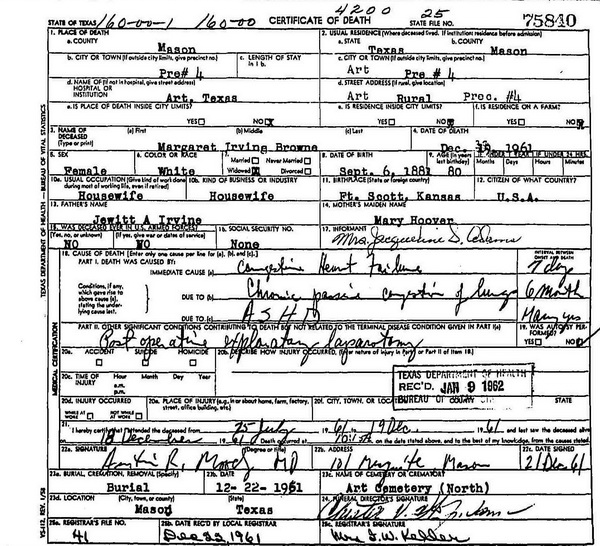 4200 25
STATE OF TEXAS 160-00-1 160-00 CERTIFICATE OF DEATH STATE FILE NO. 75840
1. PLACE OF DEATH 2. USUAL RESIDENCE (Where deceased lived. If institution: residence before admission)
a. COUNTY Mason a. STATE Texas b. COUNTY Mason
b. CITY OR TOWN (If outside city limits, give precinct no.) Pre# 4 c. LENGTH OF STAY in 1 b. c. CITY OR TOWN (If outside city limits, give precinct no.) Art Pre # 4
d. NAME OF (If not in hospital, give street address) HOSPITAL OR INSTITUTION Art, Texas d. STREET ADDRESS (If rural, give location) Art Rural Prec. #4
e. IS PLACE OF DEATH INSIDE CITY LIMITS? YES NO X e. IS RESIDENCE INSIDE CITY LIMITS? YES NO f. IS RESIDENCE ON A FARM? YES NO
3. NAME OF DECEASED (Type or print) (a) First (b) Middle (c) Last 4. DATE OF DEATH
Margarat Irving Browne Dec. 1961
5. SEX Female 6. COLOR OR RACE White 7. Married Never Married Widowed X Divorced 8. DATE OF BIRTH Sept. 6, 1881 9. AGE (In years last birthday) 80 IF UNDER 1 YEAR Months Days IF UNDER 24 HRS. Hours Minutes
10a. USUAL OCCUPATION (Give kind of work done during most of working life, even if retired) Housewife 10b. KIND OF BUSINESS OR INDUSTRY Housewife 11. BIRTHPLACE (State or foreign country) Ft. Scott, Kansas 12. CITIZEN OF WHAT COUNTRY? U.S.A.
13. FATHER'S NAME Jewitt A Irvine 14. MOTHER'S MAIDEN NAME Mary Hoover
15. WAS DECEASED EVER IN U.S. ARMED FORCES? (Yes, no, or unknown) NO (If yes, give war or dates of service) NO 16. SOCIAL SECURITY NO. None 17. INFORMANT Mrs. Jacqueline D.
18. CAUSE OF DEATH [Enter only one cause per line for (a), (b), and (c).] INTERVAL BETWEEN ONSET AND DEATH
PART I. DEATH WAS CAUSED BY: IMMEDIATE CAUSE (a) Congestive Heart Failure 7 day
Conditions, if any, which gave rise to above cause (a), stating the underlying cause last. DUE TO (b) Chronic passive congestion of lungs 6 month
DUE TO (c) ASHD Many yrs
PART II. OTHER SIGNIFICANT CONDITIONS CONTRIBUTING TO DEATH BUT NOT RELATED TO THE TERMINAL DISEASE CONDITION GIVEN IN PART I(a) 19. WAS AUTOPSY PERFORMED?
Post operative exploratory laparotomy YES NO
20a. ACCIDENT SUICIDE HOMICIDE 20b. DESCRIBE HOW INJURY OCCURRED. (Enter nature of injury in Part I or Part II of Item 18.)
20c. TIME OF INJURY Hour Month Day Year a.m. p.m.
TEXAS DEPARTMENT OF HEALTH
REC'D. JAN 9 1962
BUREAU OF
20d. INJURY OCCURRED WHILE AT WORK NOT WHILE AT WORK 20e. PLACE OF INJURY (e.g., in or about home, farm, factory, street, office building, etc.) 20f. CITY, TOWN, OR
21. I hereby certify that I attended the deceased from 25 July 1961 to 19 Dec. 1961 and last saw the deceased alive
on 18 December 1961 Death occurred at on the date stated above, and to the best of my knowledge, from the causes stated.
22a. SIGNATURE (Degree or title) MD 22b. ADDRESS 101 Mason 22c. DATE SIGNED 21 Dec 61
23a. BURIAL, CREMATION, REMOVAL (Specify) Burial 23b. DATE 12-22-1961 23c. NAME OF CEMETERY OR CREMATORY Art Cemetery (North)
23d. LOCATION (City, town, or county) (State) Mason Texas 24. FUNERAL DIRECTOR'S SIGNATURE
25a. REGISTRAR'S FILE NO. 41 25b. DATE REC'D BY LOCAL REGISTRAR 1961 25c. REGISTRAR'S SIGNATURE
TEXAS DEPARTMENT OF HEALTH — BUREAU OF VITAL STATISTICS
MEDICAL CERTIFICATION
VS-112, REV. 1/58